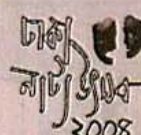 ঢাকা
নাট্য উৎসব
২০০৪